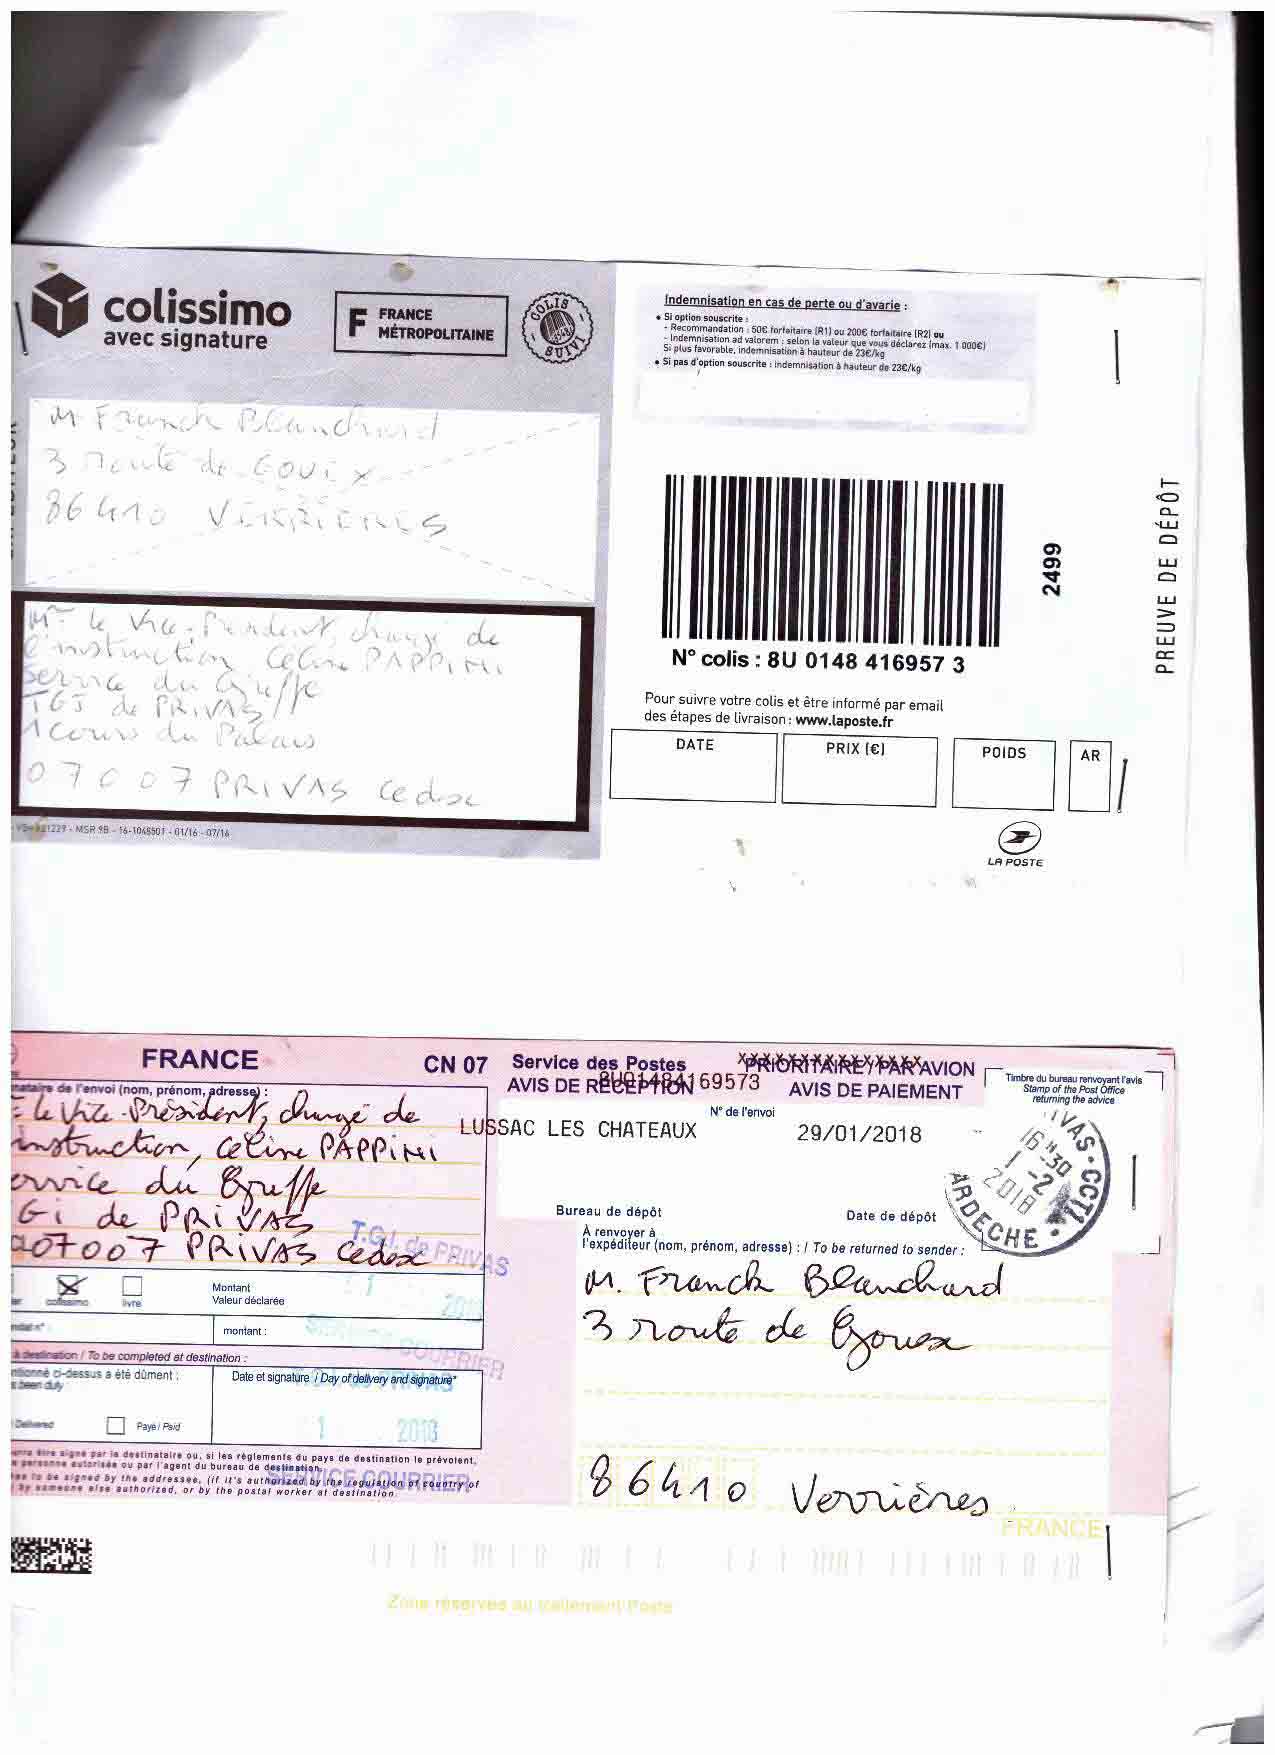 colissimo
avec signature
F FRANCE MÉTROPOLITAINE
COLIS SUIVI
M Franck Blanchard
3 route de Gouex
86410 VERRIERES
le Vice-Président, chargé de
l'instruction Céline PAPPINI
Service du Greffe
TGI de PRIVAS
1 Cours du Palais
07007 PRIVAS Cedex
MSR 9B - 16-1048501 - 01/16 - 07/16
Indemnisation en cas de perte ou d'avarie :
• Si option souscrite :
- Recommandation : 50€ forfaitaire (R1) ou 200€ forfaitaire (R2) ou
- Indemnisation ad valorem : selon la valeur que vous déclarez (max. 1 000€)
Si plus favorable, indemnisation à hauteur de 23€/kg
• Si pas d'option souscrite : indemnisation à hauteur de 23€/kg
2499
PREUVE DE DÉPÔT
N° colis : 8U 0148 416957 3
Pour suivre votre colis et être informé par email
des étapes de livraison : www.laposte.fr
DATE PRIX (€) POIDS AR
LA POSTE
FRANCE CN 07 Service des Postes PRIORITAIRE / PAR AVION
AVIS DE RÉCEPTION 8U01484169573 AVIS DE PAIEMENT
N° de l'envoi
LUSSAC LES CHATEAUX 29/01/2018
Bureau de dépôt Date de dépôt
Timbre du bureau renvoyant l'avis
Stamp of the Post Office
returning the advice
IVAS-CCT1
16H30
1-2
2018
ARDECHE
de l'envoi (nom, prénom, adresse) :
le Vice-Président, chargé de
instruction, Céline PAPPINI
ervice du Greffe
Gi de PRIVAS
07007 PRIVAS Cedex
T.G.I. de PRIVAS
1 2018
SERVICE COURRIER
colissimo livre
Montant
Valeur déclarée
montant :
à destination / To be completed at destination :
ci-dessus a été dûment :
been duly
Date et signature / Day of delivery and signature*
Delivered Payé / Paid
T.G.I. de PRIVAS
1 2018
SERVICE COURRIER
être signé par le destinataire ou, si les règlements du pays de destination le prévoient,
personne autorisée ou par l'agent du bureau de destination.
to be signed by the addressee, (if it's authorized by the regulation of country of
by someone else authorized, or by the postal worker at destination.
À renvoyer à
l'expéditeur (nom, prénom, adresse) : / To be returned to sender :
M. Franck Blanchard
3 route de Gouex
86410 Verrières
FRANCE
Zone réservée au traitement Poste